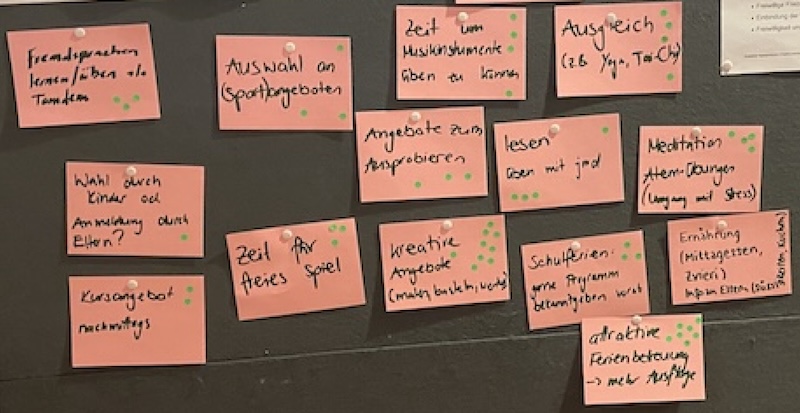 Fremdsprachen
lernen/üben
Tandem
Auswahl an
(Sport)angeboten
Zeit um
Musikinstrumente
üben zu können
Ausgleich
(z.B. Yoga, Tai-Chi)
Angebote zum
Ausprobieren
lesen
üben mit jmd
Meditation
Atem-Übungen
(Umgang mit Stress)
Wahl durch
Kinder od
Anmeldung durch
Eltern?
Zeit für
freies Spiel
kreative
Angebote
(malen, basteln, werken)
Schulferien:
gerne Programm
bekanntgeben vorab
Ernährung
(Mittagessen,
Zvieri)
Kursangebot
nachmittags
attraktive
Ferienbetreuung
-> mehr Ausflüge